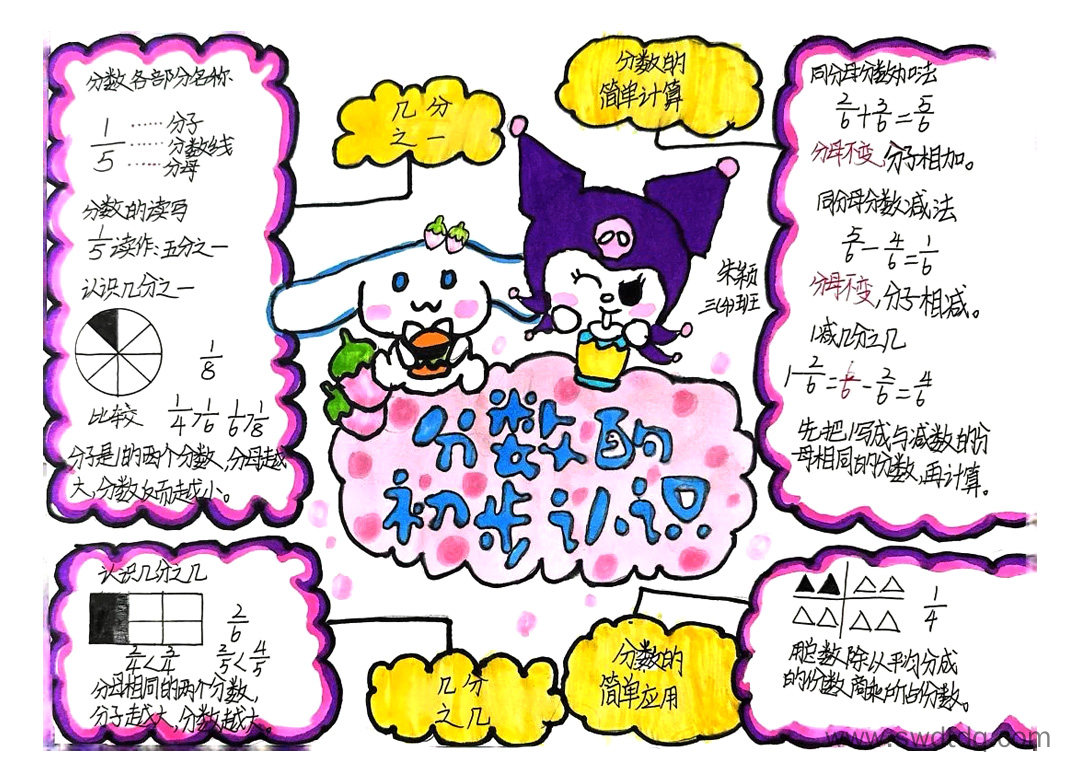 分数各部分名称
1/5 ……分子
……分数线
……分母
分数的读写
1/5读作:五分之一
认识几分之一
1/8
比较 1/4>1/6 1/6>1/8
分子是1的两个分数,分母越
大,分数反而越小。
几分
之一
分数的
简单计算
同分母分数加法
2/6+3/6=5/6
分母不变,分子相加。
同分母分数减法
5/6-4/6=1/6
分母不变,分子相减。
1减几分之几
1-2/6=6/6-2/6=4/6
先把1写成与减数的分
母相同的分数,再计算。
朱颖
三(4)班
分数的
初步认识
认识几分之几
2/6
2/4<3/4 2/5<4/5
分母相同的两个分数,
分子越大,分数越大。
几分
之几
分数的
简单应用
1/4
用总数除以平均分成
的份数,商乘所占份数。
www.swdtdq.com